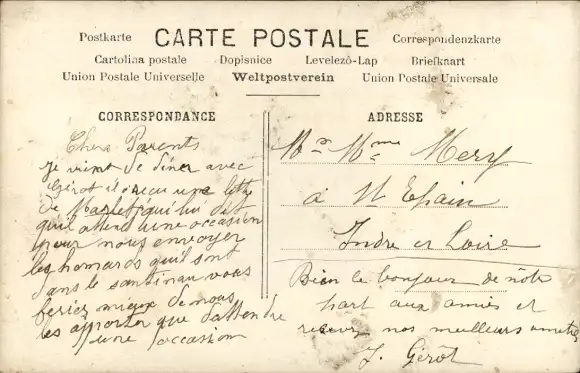 Postkarte CARTE POSTALE Correspondenzkarte
Cartolina postale Dopisnice Levelezö-Lap Briefkaart
Union Postale Universelle Weltpostverein Union Postale Universale
CORRESPONDANCE
Chers Parents
je vient de diner avec
Gérot il a recu une lettre
de qui lui dit
qu'il attend une occasion
pour nous envoyer
les homards qu'il sont
dans le vous
feriez mieux de nous
les apporter que d'attendre
une occasion
ADRESSE
Mr Mme Mery
à St Epain
Indre et Loire
Bien le bonjour de notre
part aux amies et
recevez nos meilleurs amitiés
J. Gérot